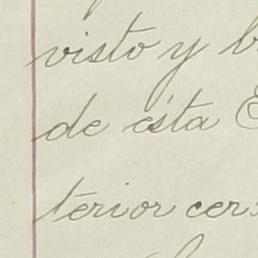 visto y b
de esta E
terior cer